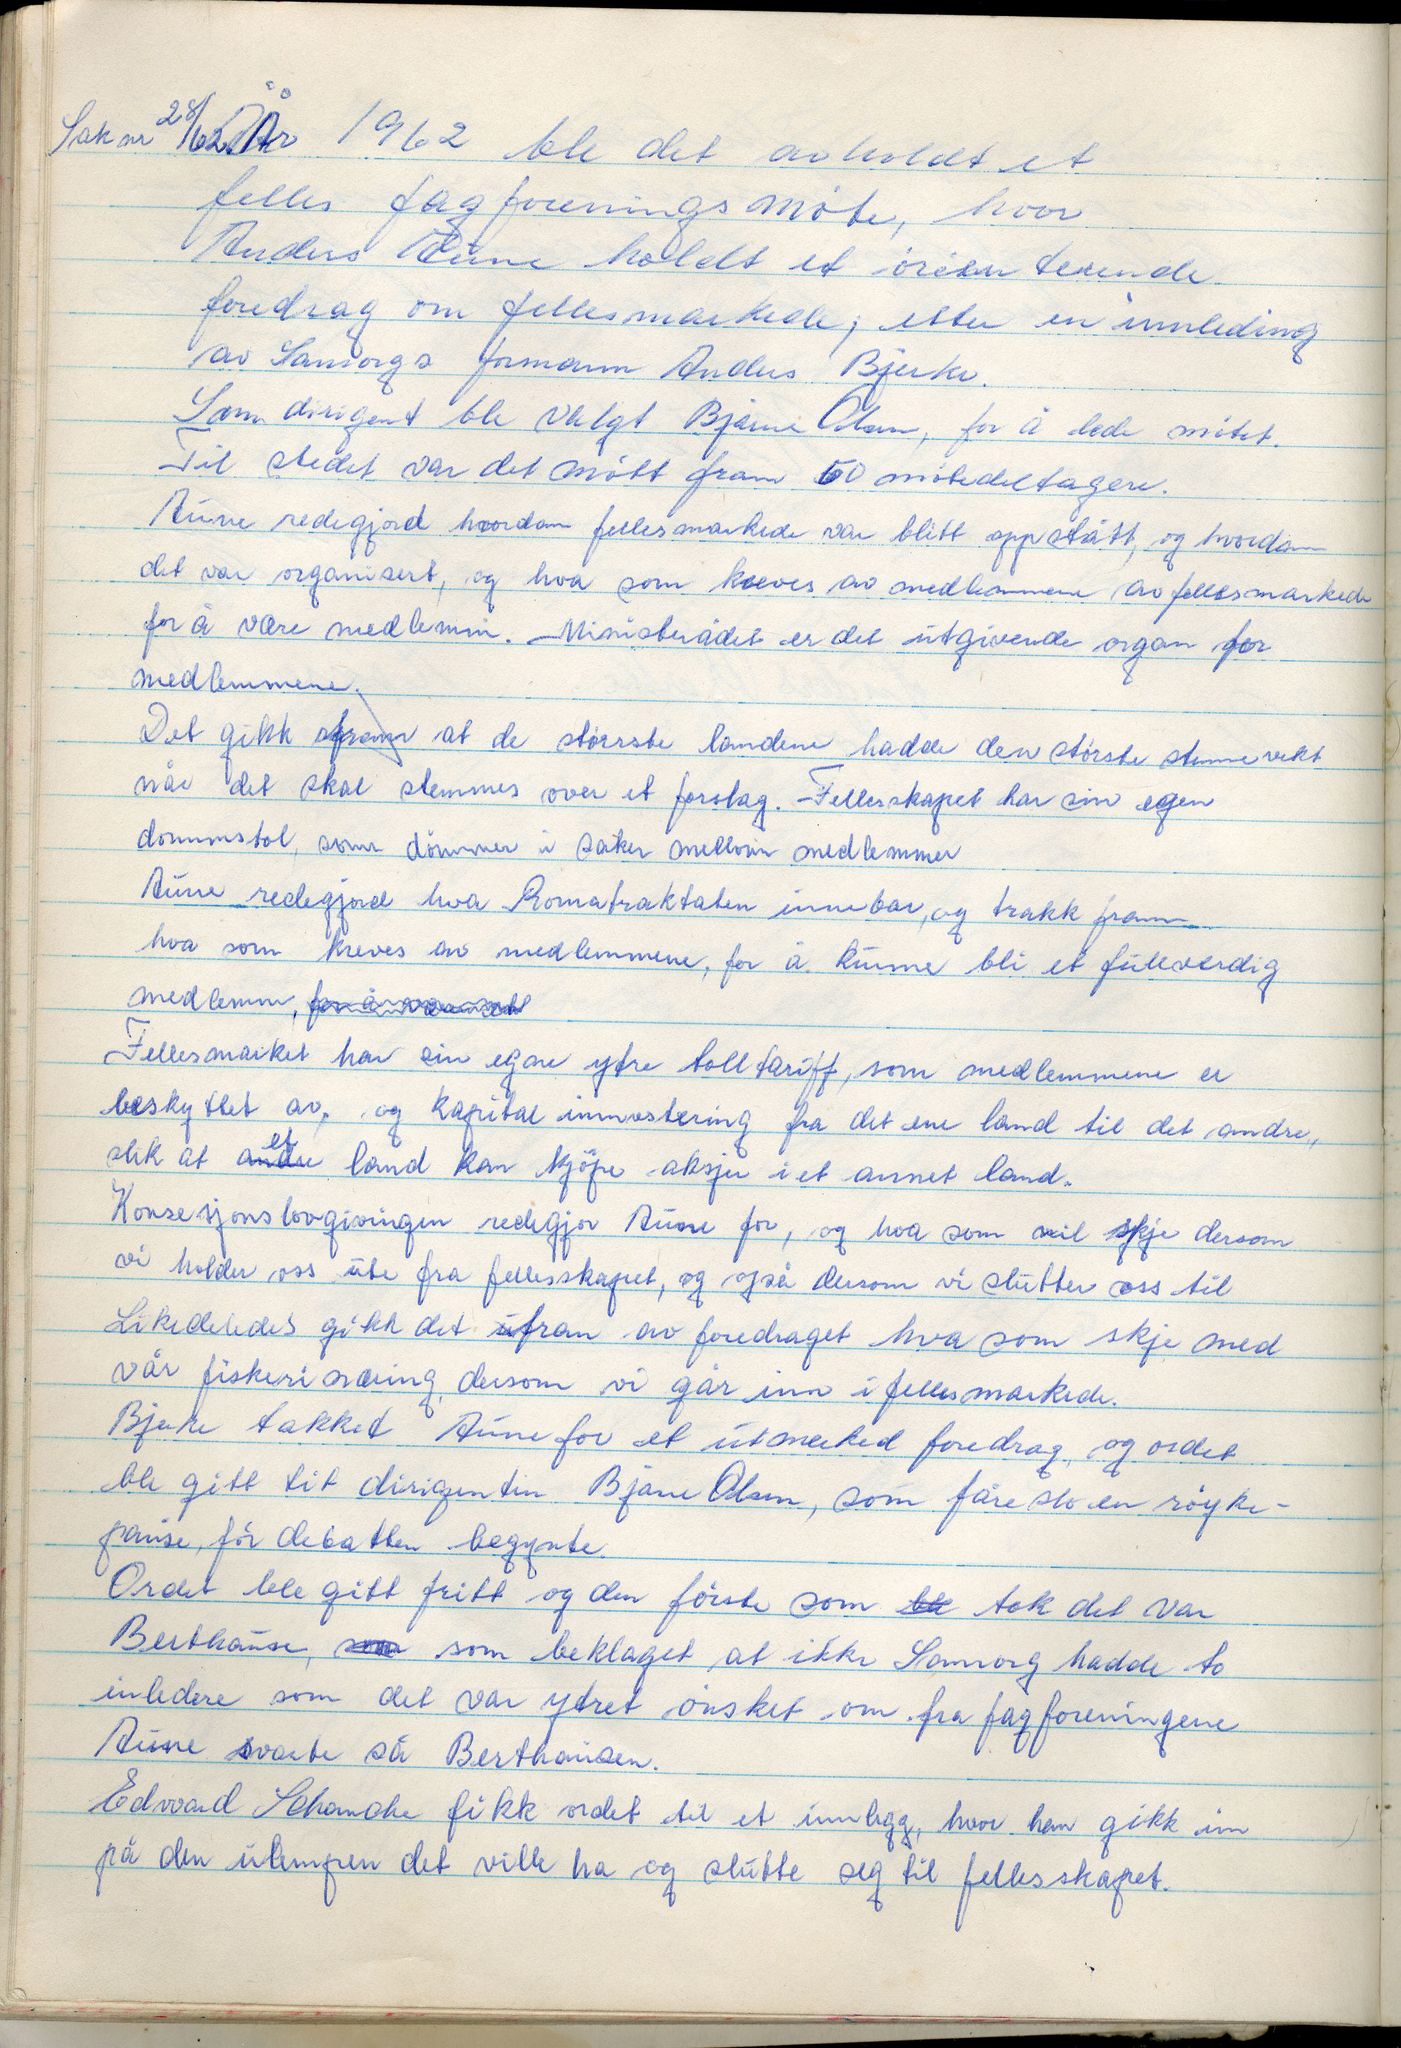 Sak nr 28/62 År 1962 ble det avholdt et
felles fagforeningsmöte, hvor
Anders Aune holdt et orienterende
foredrag om fellesmarkede, etter en innleding
av Samorgs formann Anders Bjerke.
Som dirigent ble valgt Bjarne Olsen, for å lede mötet.
Til stedet var det mött fram 50 mötedeltagere.
Aune redegjord hvordan fellesmarkede var blitt oppstått, og hvordan
det var organisert, og hva som kreves av medlemmene av fellesmarkede
for å være medlemm. Ministerådet er det utgivende organ for
medlemmene.
Det gikk fram at de störrste landene hadde den störste stemmevekt
når det skal stemmes over et forslag. Fellesskapet har sin egen
dommstol, som dömmer i saker mellom medlemmer
Aune redegjord hva Romatraktaten innebar, og trakk fram
hva som kreves av medlemmene, for å kunne bli et fullverdig
medlemm, for å være et
Fellesmarket har sin egne ytre tolltariff, som medlemmene er
beskyttet av, og kapital innvestering fra det ene land til det andre,
slik at andre et land kan kjöpe aksjer i et annet land.
Konsesjonslovgivingen redegjor Aune for, og hva som vil skje dersom
vi holder oss ute fra fellesskapet, og også dersom vi slutter oss til
Likedeledes gikk det fram av foredraget hva som skje med
vår fiskerinæring, dersom vi går inn i fellesmarkede.
Bjerke takket Aune for et utmerked foredrag, og ordet
ble gitt til dirigenten Bjarne Olsen, som føreslo en röyke-
pause, för debatten begynte.
Ordet ble gitt fritt og den förste som ble tok det var
Berthause, som som beklaget at ikke Samorg hadde to
inledere som det var ytret önsket om fra fagforeningene
Aune svarte så Berthausen.
Edvard Schancke fikk ordet til et innlegg, hvor han gikk inn
på den ulempen det ville ha og slutte seg til fellesskapet.